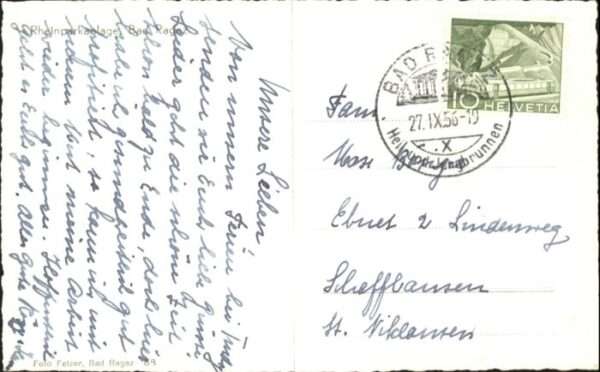 Rheinparkanlage, Bad Ragaz
Unsere Lieben!
Von unserm Ferien bei
senden wir Euch lieb. Grüsse.
Leider geht die schöne Zeit
schon bald zu Ende, doch
habe ich gesundheitlich gut
profitiert, so kann ich mit
neuem Mut meine Arbeit
wieder beginnen. Hoffentlich
geht es Euch gut. Alles gute
Foto Fetzer, Bad Ragaz
BAD RAGAZ
27.IX.56-10
X
Heil- und brunnen
10 HELVETIA
Fam.
Max
Ebnet 2 Lindenweg
Schaffhausen
St. Niklausen